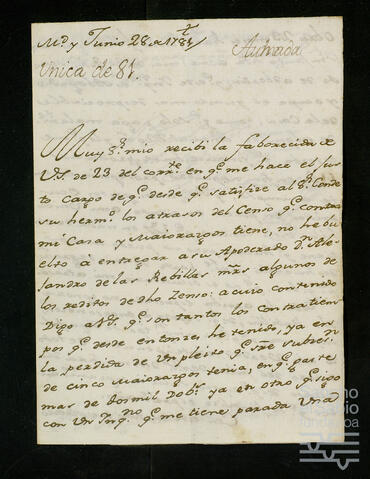 Md. y Junio 28 de 1781
Unica de 81.
Muy Sr. mio recibi la faborecida de
VS. de 23 del corrte. en qe. me hace el jus
to cargo de qe. desde qe. satisfice al Sr. Conde
su hermo. los atrasos del Censo qe. contra
mi Casa y Maiorazgos tiene, no he bu
elto á entregar a su Apoderado Dn. Ale
jandro de las Rebillas mrs algunos de
los reditos de dho Zenso: a cuio contenido
Digo a VS. qe. son tantos los contratiem
pos qe. desde entonzes he tenido, ya en
la perdida de un pleito qe. sre
de cinco Maiorazgos tenia, en qe. gaste
mas de dos mil Dobs. ya en otro qe. sigo
con Un qe. me tiene parada Una